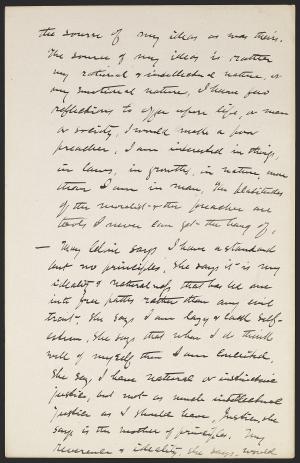 the source of my ideas as was theirs.
The source of my ideas is rather
my rational & intellectual nature, or
my emotional nature, I have few
reflections to offer upon life, or man
or society, I would make a poor
preacher, I am interested in things,
in laws, in growths, in nature, more
than I am in man. The platitudes
of the moralist & the preacher are
tools I never can get the hang of,
— says I have a standard
but no principles, She says it is my
ideality & naturalness that has led me
into free paths rather than any evil
trait. She says I am lazy & lack self-
esteem, She says that when I do think
well of myself then I am
She says I have natural or instinctive
justice, but not as much intellectual
justice as I should have, Justice, she
says is the mother of principles. My
reverence & ideality, she says, would